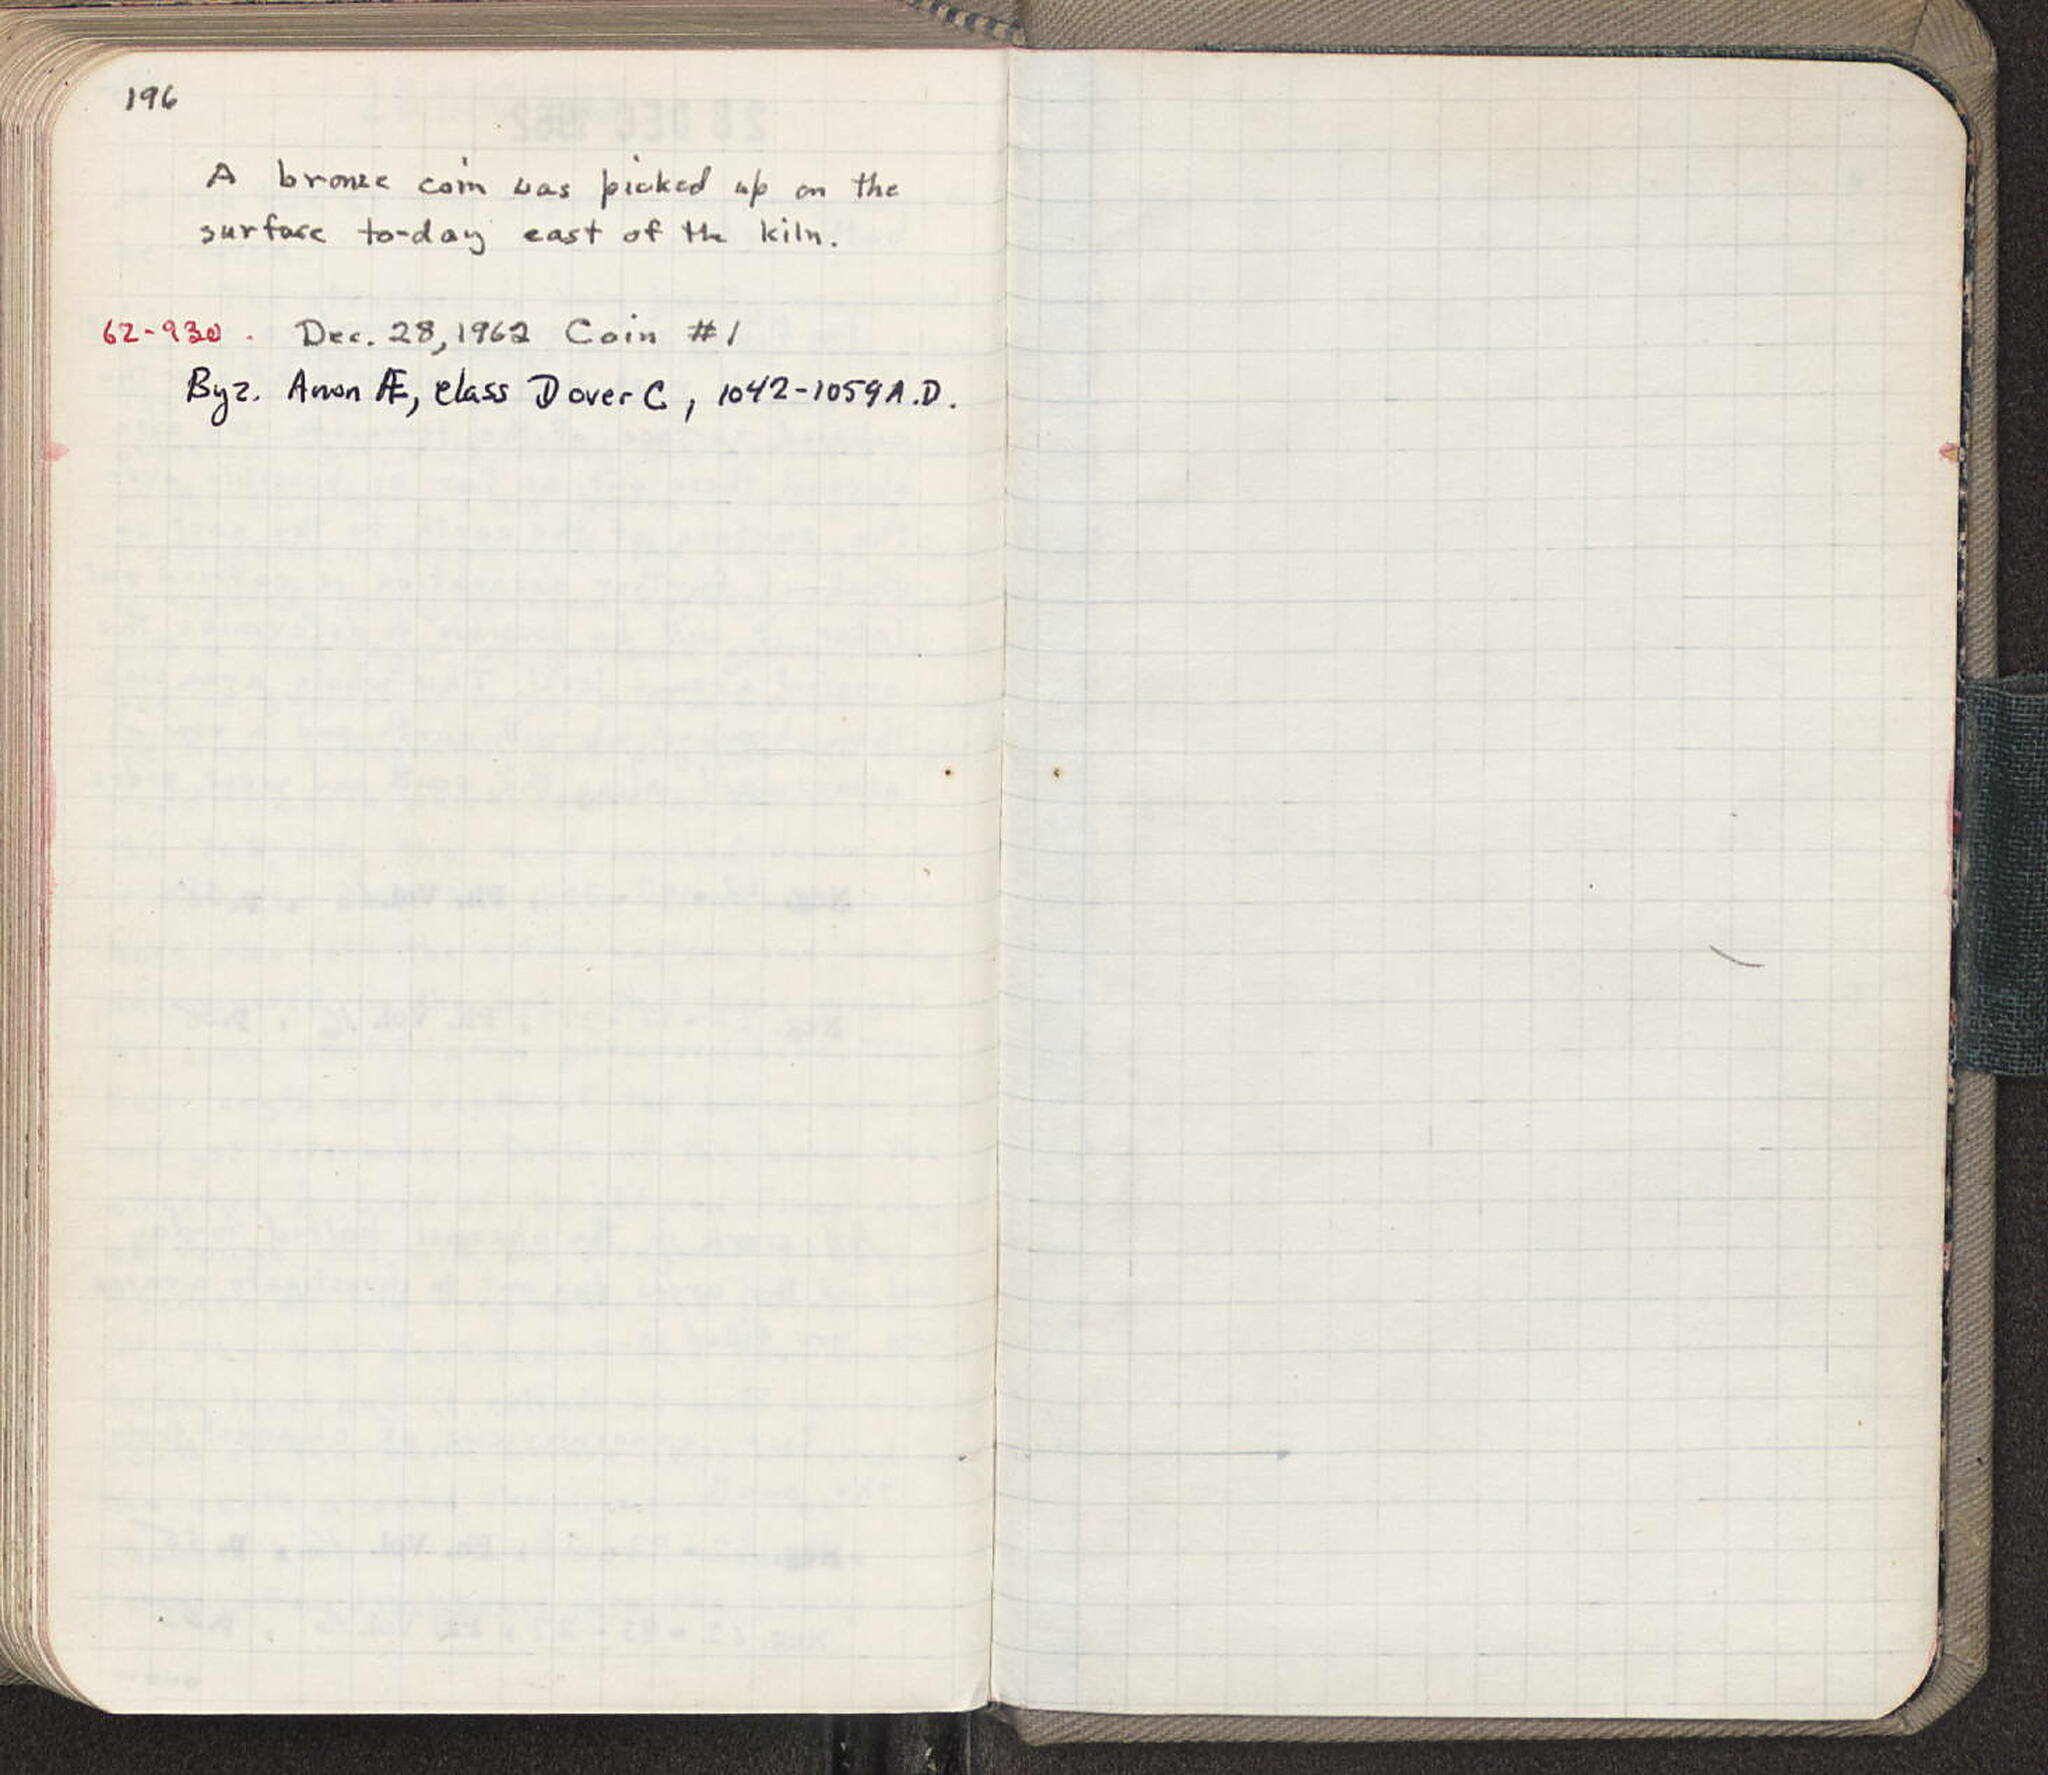 196
A bronze coin was picked up on the
surface to-day east of the kiln.
62-930. Dec. 28, 1962 Coin #1
Byz. Anon Æ, Class D over C, 1042-1059 A.D.